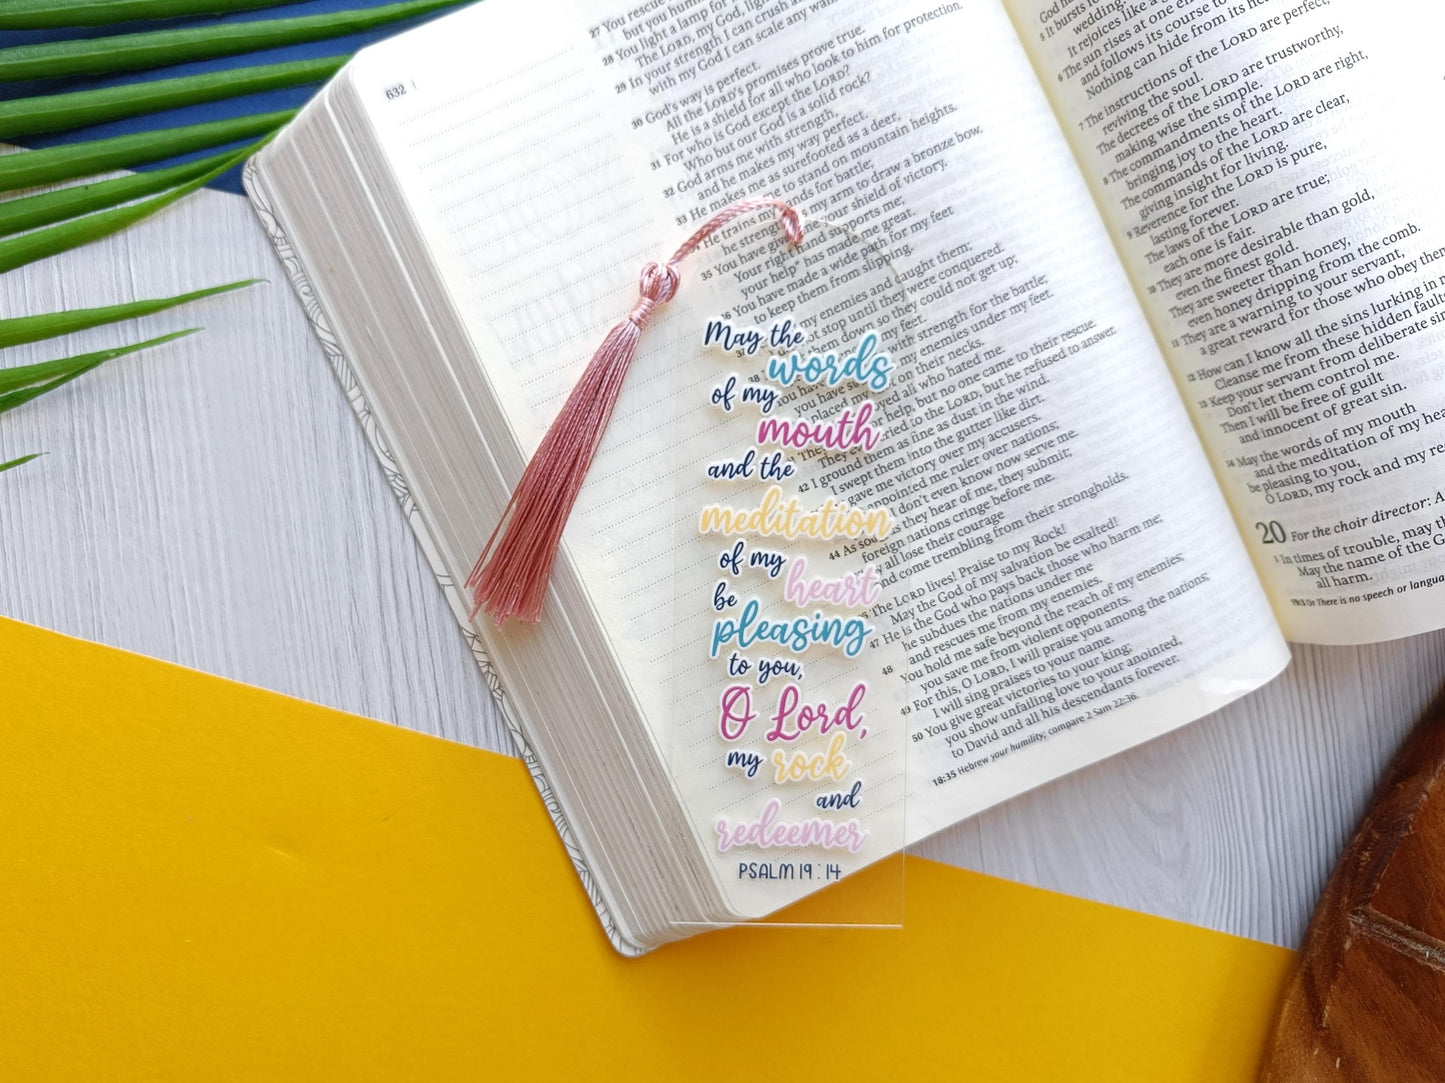 632
27 You rescue
but you hum
28 You light a lamp for
The LORD, my God, ligh
29 In your strength I can crush a
with my God I can scale any wall.
30 God's way is perfect.
All the LORD's promises prove true.
He is a shield for all who look to him for protection.
31 For who is God except the LORD?
Who but our God is a solid rock?
32 God arms me with strength,
and he makes my way perfect.
33 He makes me as surefooted as a deer,
to stand on mountain heights.
He trains my hands for battle;
he strengthens my arm to draw a bronze bow.
35 You have given your shield of victory.
Your right hand supports me;
your help* has made me great.
36 You have made a wide path for my feet
to keep them from slipping.
my enemies and caught them;
not stop until they were conquered.
them down so they could not get up;
my feet.
with strength for the battle;
my enemies under my feet.
on their necks.
all who hated me.
for help, but no one came to their rescue.
cried to the LORD, but he refused to answer.
42 I ground them as fine as dust in the wind.
I swept them into the gutter like dirt.
gave me victory over my accusers.
appointed me ruler over nations;
I don't even know now serve me.
44 As soon as they hear of me, they submit;
foreign nations cringe before me.
all lose their courage
and come trembling from their strongholds.
The LORD lives! Praise to my Rock!
May the God of my salvation be exalted!
47 He is the God who pays back those who harm me;
he subdues the nations under me
48 and rescues me from my enemies.
You hold me safe beyond the reach of my enemies;
you save me from violent opponents.
49 For this, O LORD, I will praise you among the nations;
I will sing praises to your name.
50 You give great victories to your king;
you show unfailing love to your anointed,
to David and all his descendants forever.
18:35 Hebrew your humility; compare 2 Sam 22:36.
May the
words
of my
mouth
and the
meditation
of my
heart
be
pleasing
to you,
O Lord,
my rock
and
redeemer
PSALM 19:14
God h
5 It bursts fo
wedding.
It rejoices like a
6 The sun rises at one en
and follows its course to
Nothing can hide from its he
7 The instructions of the LORD are perfect,
reviving the soul.
The decrees of the LORD are trustworthy,
making wise the simple.
8 The commandments of the LORD are right,
bringing joy to the heart.
The commands of the LORD are clear,
giving insight for living.
9 Reverence for the LORD is pure,
lasting forever.
The laws of the LORD are true;
each one is fair.
10 They are more desirable than gold,
even the finest gold.
They are sweeter than honey,
even honey dripping from the comb.
11 They are a warning to your servant,
a great reward for those who obey them
12 How can I know all the sins lurking in m
Cleanse me from these hidden fault
13 Keep your servant from deliberate sin
Don't let them control me.
Then I will be free of guilt
and innocent of great sin.
14 May the words of my mouth
and the meditation of my hea
be pleasing to you,
O LORD, my rock and my re
20 For the choir director: A
1 In times of trouble, may th
May the name of the G
all harm.
19:3 Or There is no speech or langua